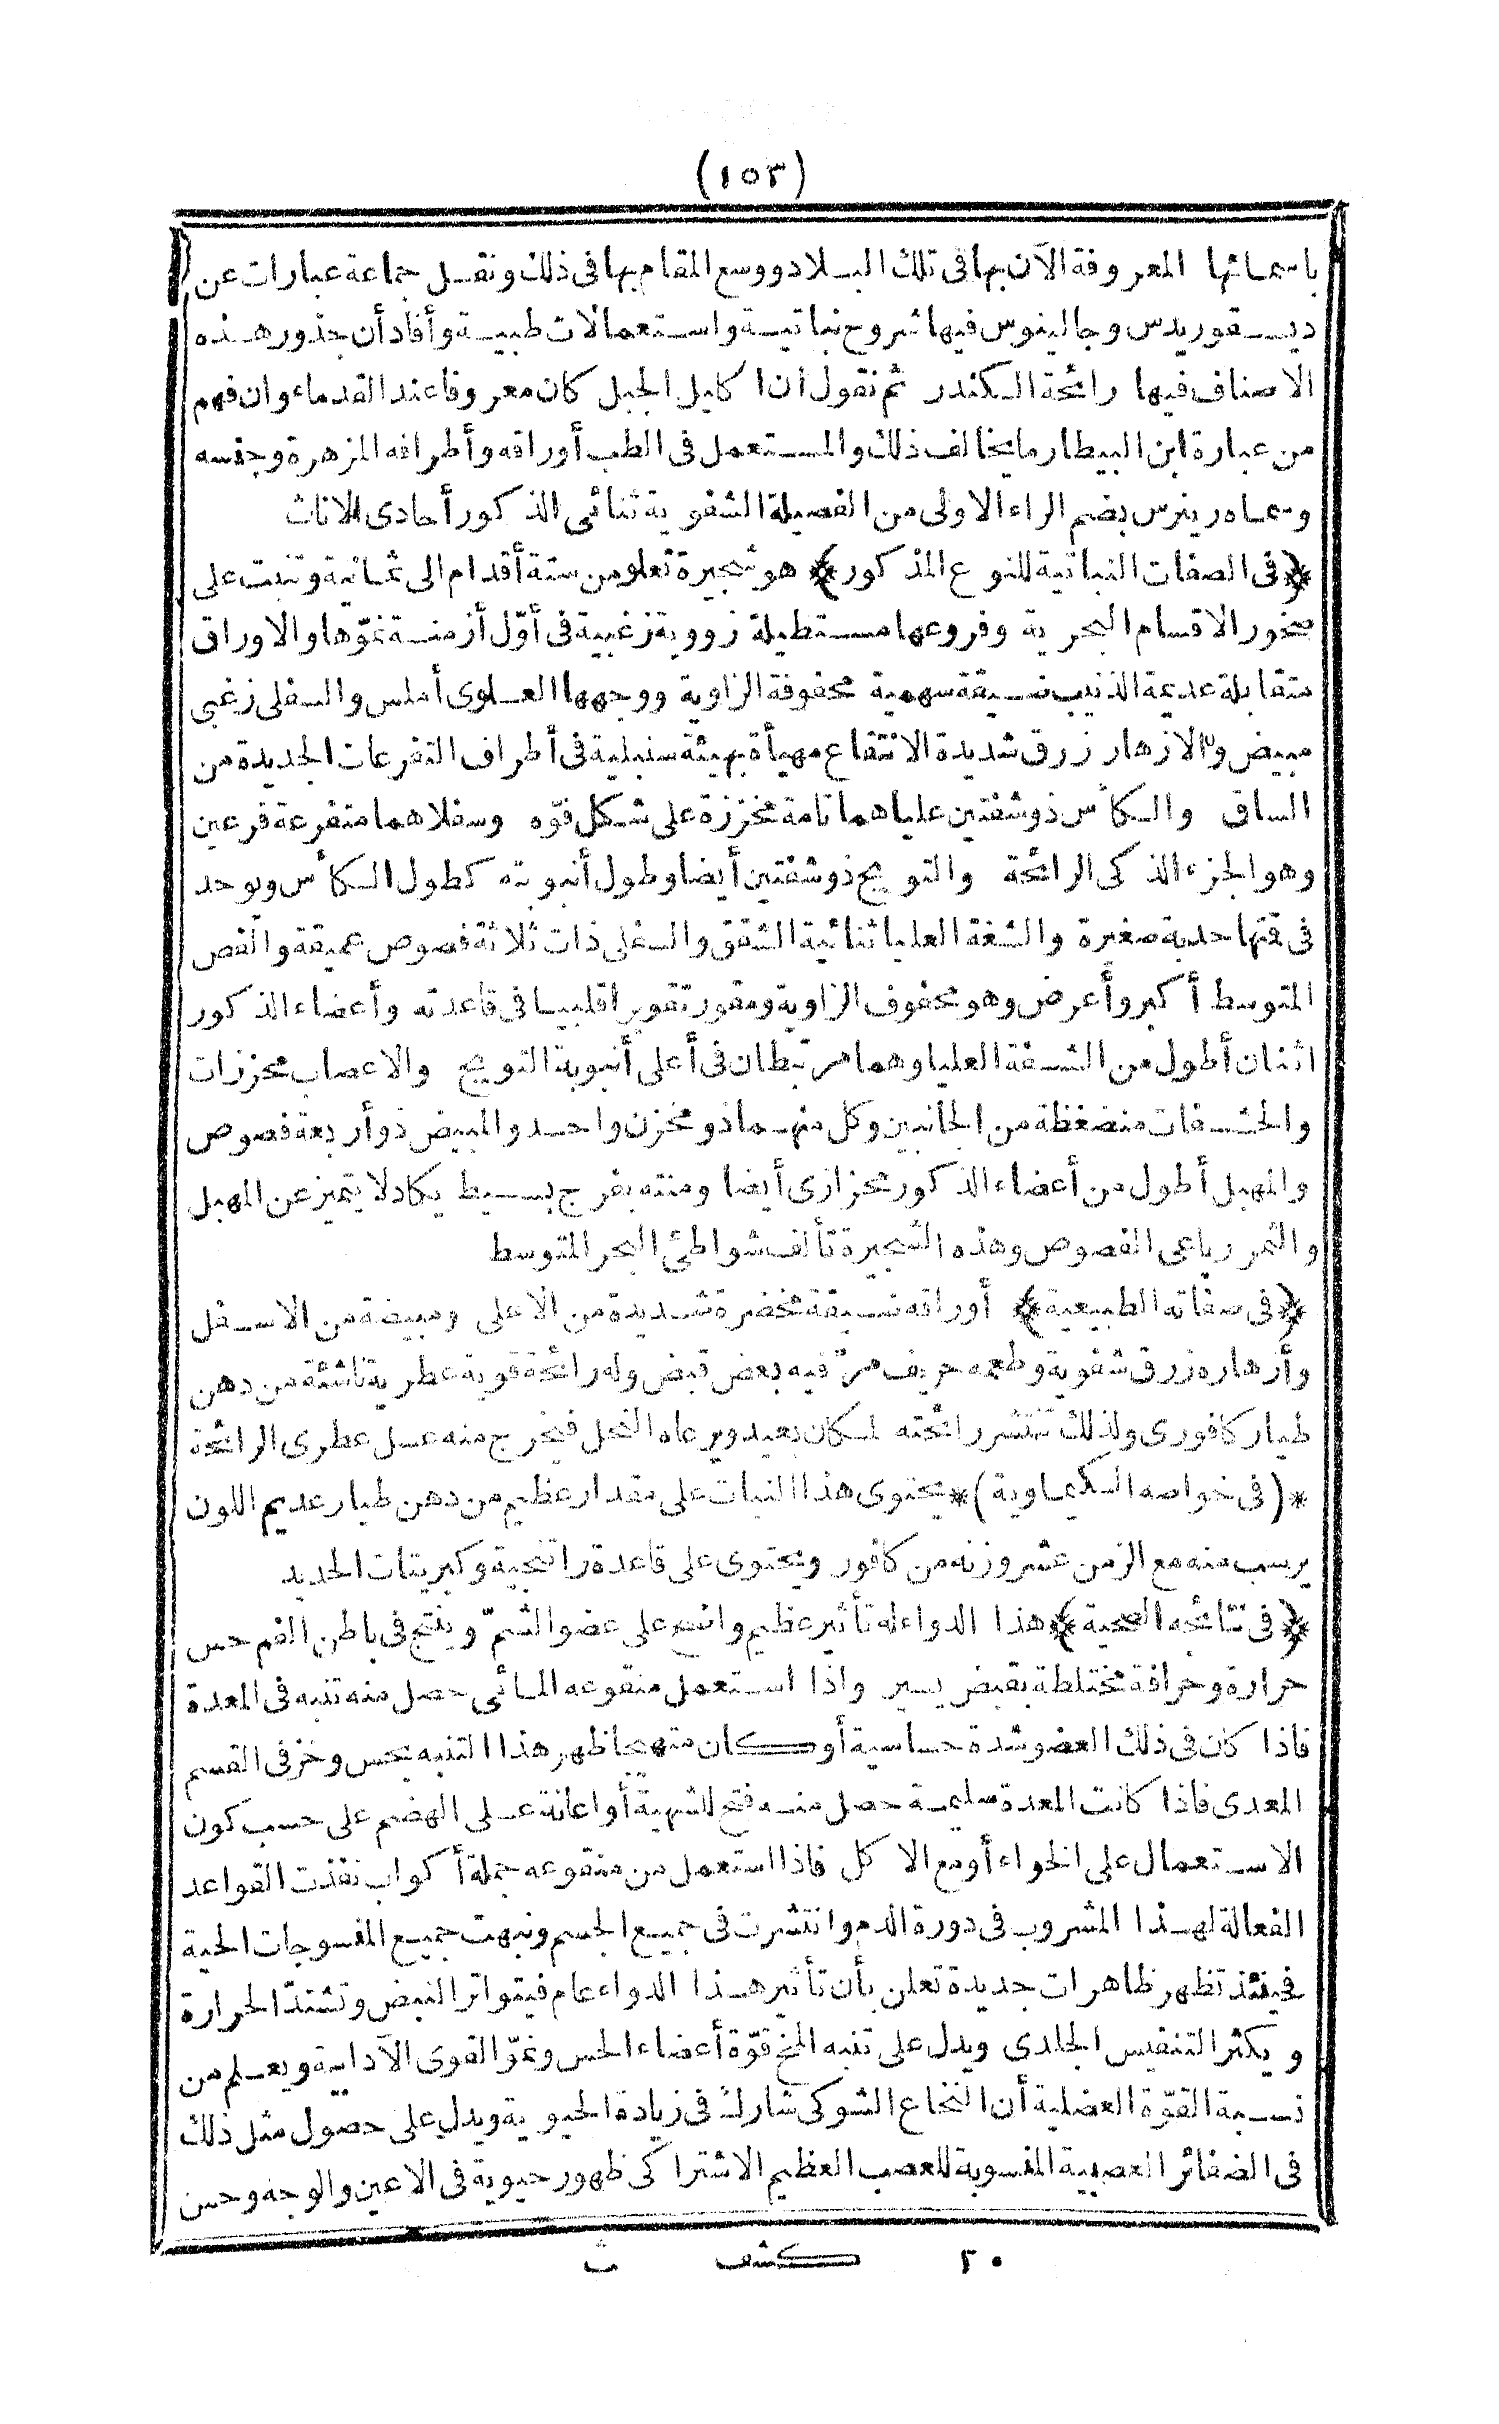 (١٥٣)
باسمائها المعروفة الآن بها فى تلك البلاد ووسع المقام بها فى ذلك ونقل جماعة عبارات عن
ديسقوريدس وجالينوس فيها شروح نباتية واستعمالات طبية وأفاد أن جذور هذه
الاصناف فيها رائحة الكندر ثم نقول ان اكليل الجبل كان معروفا عند القدماء وان فهم
من عبارة ابن البيطار ما يخالف ذلك والمستعمل فى الطب أوراقه وأطرافه المزهرة وجنسه
وسماه رينرس بضم الراء الاولى من الفصيلة الشفوية ثنائى الذكور أحادى الاناث
﴿فى الصفات النباتية للنوع المذكور﴾ هو شجيرة تعلو من ستة أقدام الى ثمانية وتنبت على
صخور الاقسام البحرية وفروعها مستطيلة زووية زغبية فى أوّل أزمنة نموّها والاوراق
متقابلة عديمة الذنيب ضيقة سهمية محفوفة الزاوية ووجهها العلوى أملس والسفلى زغبى
مبيض والازهار زرق شديدة الانتقاع مهيأة بهيئة سنبلية فى أطراف التفرعات الجديدة من
الساق والكأس ذو شفتين علياهما تامة مخززة على شكل قوّه وسفلاهما متفرعة فرعين
وهو الجزء الذكى الرائحة والتويج ذو شفتين أيضا وطول أنبوبته كطول الكأس ويوجد
فى قمتها حدبة صغيرة والشفة العليا ثنائية الشقق والسفلى ذات ثلاثة فصوص عميقة والفص
المتوسط أكبر وأعرض وهو محفوف الزاوية ومقور تقويرا قلبيا فى قاعدته وأعضاء الذكور
اثنان أطول من الشفة العليا وهما مرتبطان فى أعلى أنبوبة التويج والاعصاب محززات
والحشفات منضغطة من الجانبين وكل منهما ذو مخزن واحد والمبيض ذو أربعة فصوص
والمهبل أطول من أعضاء الذكور محزازى أيضا ومنته بفرج بسيط يكاد لا يتميز عن المهبل
والثمر رباعى الفصوص وهذه الشجيرة تألف شواطئ البحر المتوسط
﴿فى صفاته الطبيعية﴾ أوراقه ضيقة مخضرة شديدة من الاعلى ومبيضة من الاسفل
وأزهاره زرق شفوية وطعمه حريف مرّ فيه بعض قبض وله رائحة قوية عطرية ناشئة من دهن
طيار كافورى ولذلك تنتشر رائحته لمكان بعيد ويرعاه النحل فيخرج منه عسل عطرى الرائحة
*(فى خواصه الكيماوية)* يحتوى هذا النبات على مقدار عظيم من دهن طيار عديم اللون
يرسب منه مع الزمن عشر وزنه من كافور ويحتوى على قاعدة راتنجية وكبريتات الحديد
﴿فى نتائجه الصحية﴾ هذا الدواء له تأثير عظيم واضح على عضو الشمّ وينتج فى باطن الفم حس
حرارة وحرافة مختلطة بقبض يسير واذا استعمل منقوعه المائى حصل منه تنبه فى المعدة
فاذا كان فى ذلك العضو شدة حساسية أو كان متهيجا ظهر هذا التنبه بحس وخز فى القسم
المعدى فاذا كانت المعدة سليمة حصل منه فتح للشهية أو اعانة على الهضم على حسب كون
الاستعمال على الخواء أو مع الاكل فاذا استعمل من منقوعه جملة أكواب نفذت القواعد
الفعالة لهذا المشروب فى دورة الدم وانتشرت فى جميع الجسم ونبهت جميع المنسوجات الحية
فحينئذ تظهر ظاهرات جديدة تعلن بأن تأثير هذا الدواء عام فيتواتر النبض وتشتدّ الحرارة
ويكثر التنفيس الجلدى ويدل على تنبه المخ قوّة أعضاء الحس ونموّ القوى الآدابية ويعلم من
نسبة القوّة العضلية أن النخاع الشوكى شارك فى زيادة الحيوية ويدل على حصول مثل ذلك
فى الضفائر العصبية المنسوبة للعصب العظيم الاشتراكى ظهور حيوية فى الاعين والوجه وحس
٢٠ كشف ث